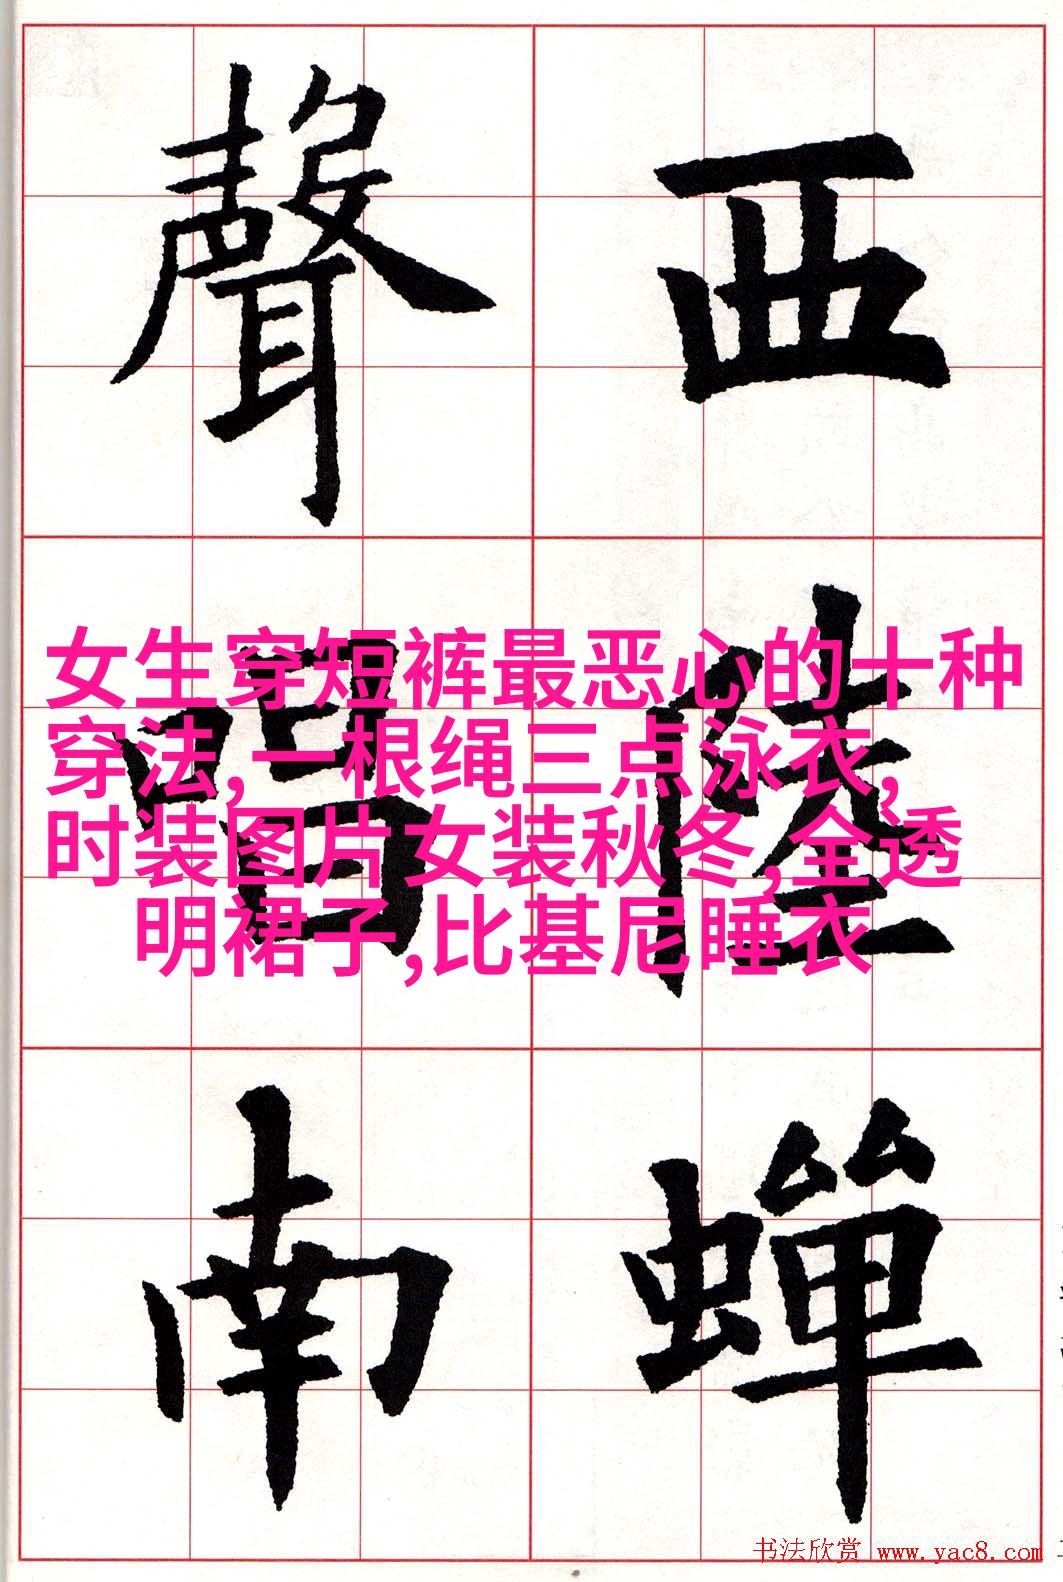 西陸蟬
聲唱南
女生穿短裤最恶心的十种
穿法,一根绳三点泳衣,
时装图片女装秋冬,全透
明裙子,比基尼睡衣
书法欣赏 www.yac8.com